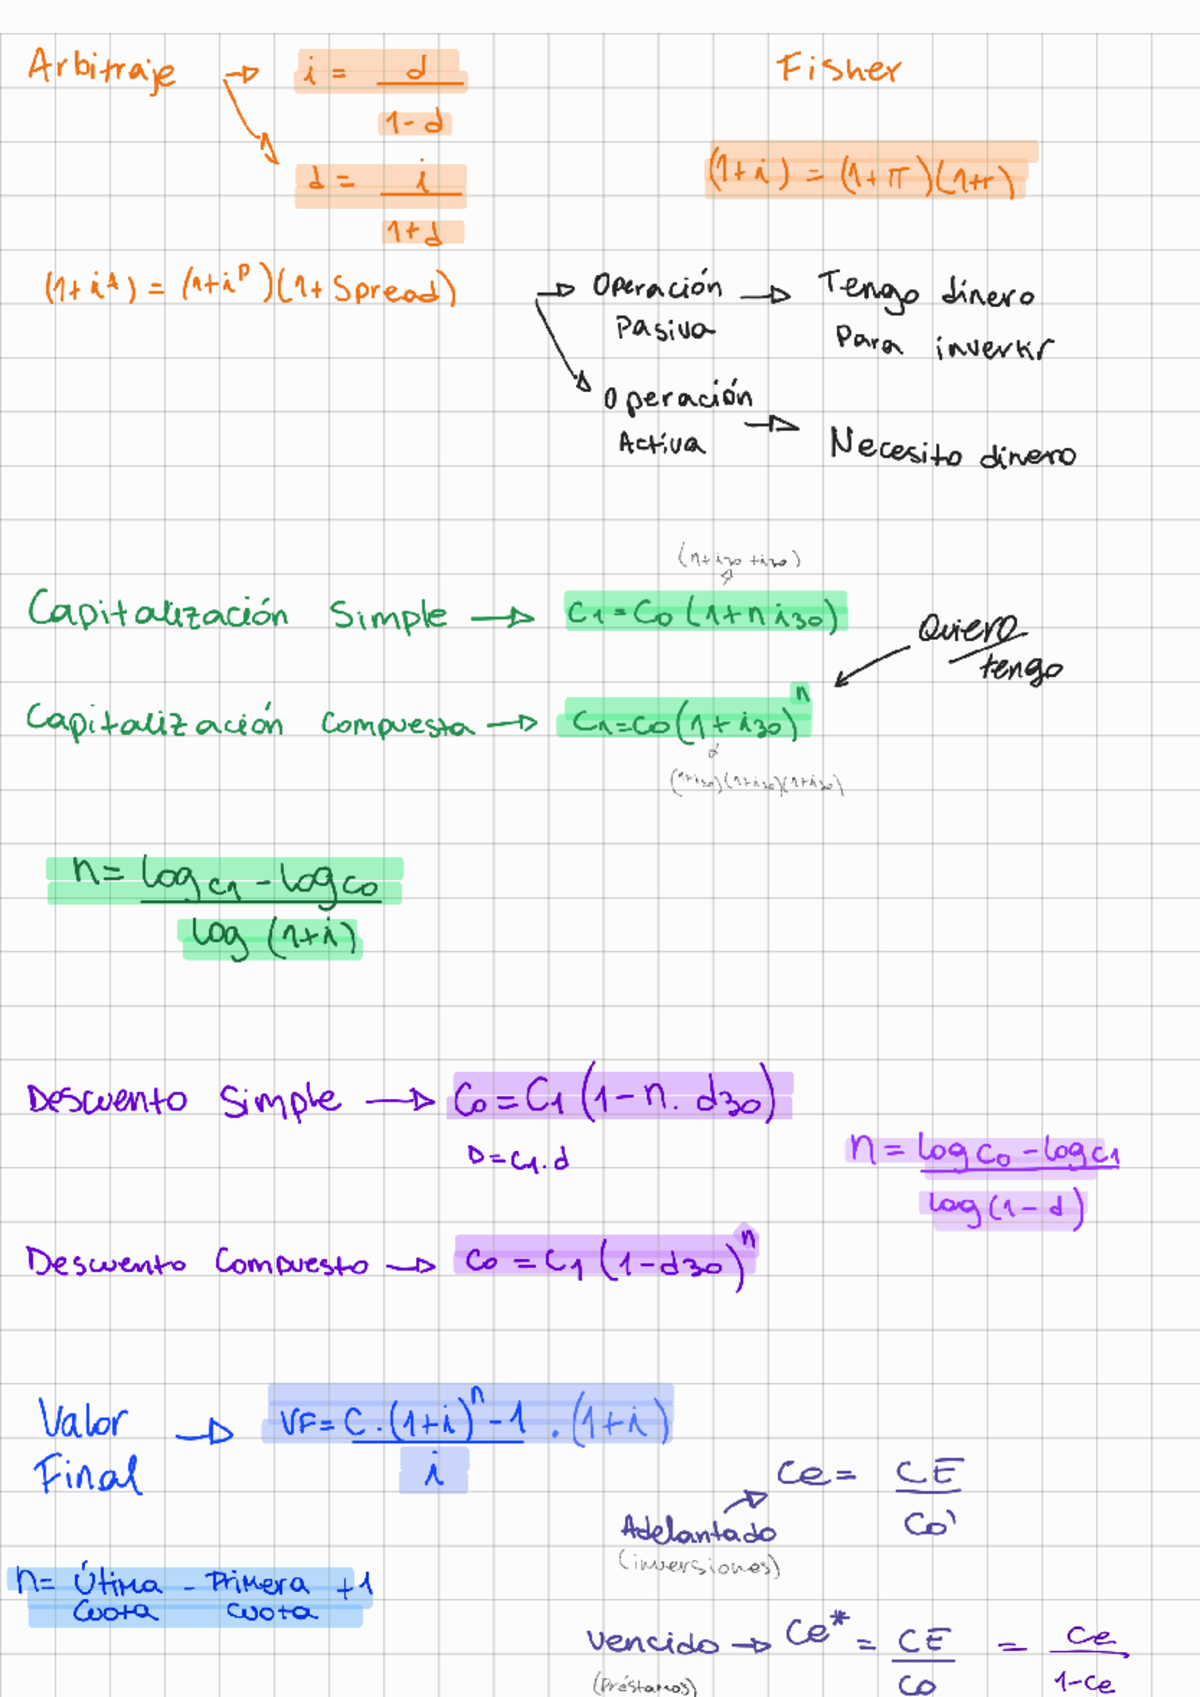 Arbitraje → i = d / 1-d
Fisher
d = i / 1+d
(1+i) = (1+π)(1+r)
(1+i^A) = (1+i^P)(1+Spread)
→ Operación Pasiva → Tengo dinero
Para invertir
Operación Activa → Necesito dinero
(1+i30+i30)
Capitalización Simple → C1=C0(1+n i30)
Quiero
tengo
Capitalización Compuesta → C1=C0(1+i30)^n
(1+i30)(1+i30)(1+i30)
n= log C1 - log C0
log (1+i)
Descuento Simple → C0=C1(1-n. d30)
D=C1.d
n= log C0 - log C1
log(1-d)
Descuento Compuesto → C0=C1(1-d30)^n
Valor Final → VF= C.(1+i)^n-1 / i .(1+i)
Adelantado → Ce= CE / C0'
(inversiones)
n= Útima cuota - Primera cuota +1
Vencido → Ce* = CE / C0 = Ce / 1-Ce
(Préstamos)